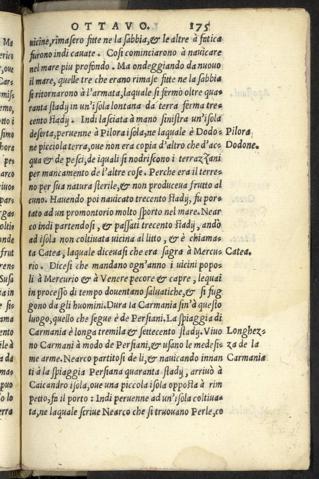 OTTAVO. 175
uicine, rimasero fitte ne la sabbia, & le altre à fatica
furono indi cauate. Cosi cominciarono à nauicare
nel mare piu profondo. Ma ondeggiando da nuouo
il mare, quelle tre che erano rimase fitte ne la sabbia
si ritornarono à l'armata, laquale si fermò oltre qua-
ranta stady in un'isola lontana da terra ferma tre-
cento stady. Indi lasciata à mano sinistra un'isola
deserta, peruenne à Pilora isola, ne laquale è Dodo- Pilora
ne picciola terra, oue non era copia d'altro che d'ac- Dodone.
qua & de pesci, de iquali si nodriscono i terrazzani
per mancamento de l'altre cose. Perche era il terre-
no per sua natura sterile, & non produceua frutto al
cuno. Hauendo poi nauicato trecento stady, fu por-
tato ad un promontorio molto sporto nel mare. Near
co indi partendosi, & passati trecento stady, andò
ad isola non coltiuata uicina al litto, & è chiama-
ta Catea, laquale diceuasi che era sagra à Mercu- Catea.
rio. Dicesi che mandano ogn'anno i uicini popo-
li à Mercurio & à Venere pecore & capre, lequai
in processo di tempo douentano saluatiche, & si fug
gono da gli huomini. Dura la Carmania fin'à questo
luogo, quello che segue è de Persiani. La spiaggia di
Carmania è longa tremila & settecento stady. Viuo Longhez-
no Carmani à modo de Persiani, & usano le medesi- za de la
me arme. Nearco partitosi de li, & nauicando innan Carmania
ti à la spiaggia Persiana quaranta stady, arriuò à
Caicandro isola, oue una picciola isola opposta à rim
petto, fa il porto: Indi peruenne ad un'isola coltiua-
ta, ne laquale scriue Nearco che si truouano Perle, co